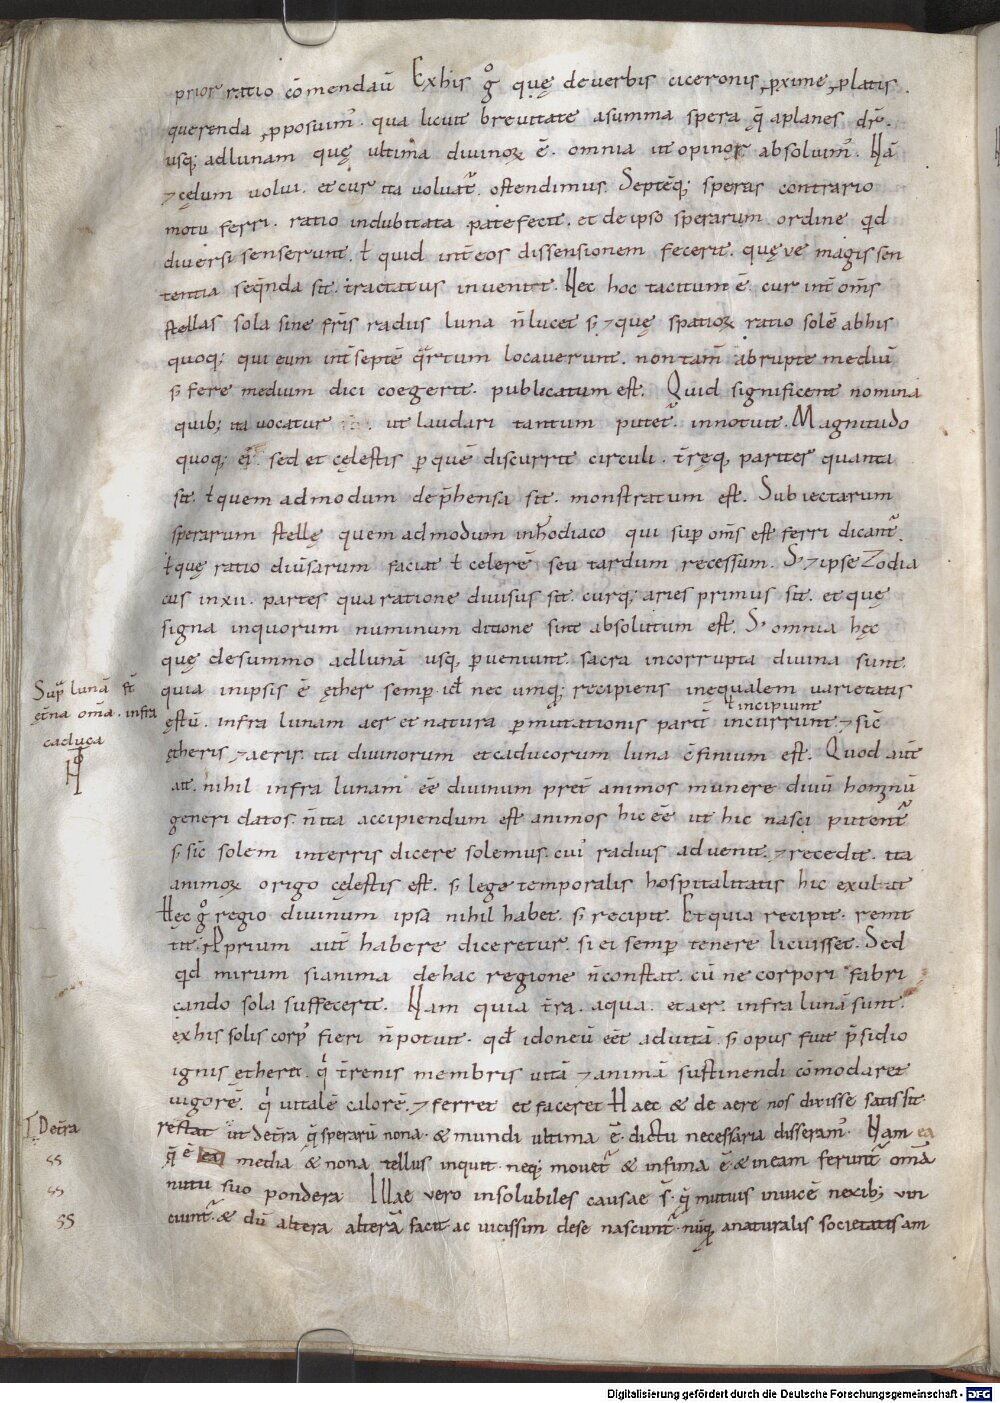 prior ratio cōmendaū Exhis gͦ quę deverbis ciceronis ꝓxime ꝓlatis.
querenda ꝓposuim᾽. qua licuit brevitate asumma spera q̄ aplanes dr̄.
usq; adlunam quę ultima divinoꝝ ē. omnia ut opinor absolvim᾽. Nā
⁊ cęlum volvi. et cur ita volvat᷑ ostendimus. Septēq; speras contrario
motu ferri. ratio indubitata patefecit. et de ipso sperarum ordine qd
diversi senserunt. ł quid int̄ eos dissensionem fecerit. quęve magis sen
tentia seq̄nda sit. tractatus invenit. Nec hoc tacitum ē. cur int̄ om̄s
stellas sola sine fr̄is radiis luna n̄ lucet s; ⁊ quę spatioꝝ ratio solē abhis
quoq; qui eum int̄ septē q̈rtum locaverunt. non tam̄ abrupte mediū
s; fere medium dici coegerit. publicatum est. Quid significent nomina
quib; ita vocatur ut laudari tantum putet᷑. innotuit. Magnitudo
quoq; ei᾽. sed et cęlestis ꝑ quē discurrit circuli. t̄ręq; pariter quanta
sit. ł quem admodum dep̄hensa sit. monstratum est. Subiectarum
sperarum stellę quem admodum inhodiaco qui sup̄ om̄s est ferri dicant᷑.
ł quę ratio div̄sarum faciat ł celerē seu tardum recessum. S; ⁊ ipse Zodia
cus in xii. partes qua ratione divisus sit. curq; aries primus sit. et quę
signa inquorum numinum ditione sint absolutum est. S; omnia hęc
quę desummo adlunā usq; ꝑveniunt. sacra incorrupta divina sunt
quia inipsis ē ęther semꝑ idē nec umq; recipiens inequalem varietatis
ł incipiunt
ęstū. infra lunam aer et natura ꝑmutationis parit̄ incurrunt ⁊ sic̄
ętheris ⁊ aeris. ita divinorum et caducorum luna c̄finium est. Quod aut̄
ait. nihil infra lunam ēē divinum pret̄ animos munere divū hominū
generi datos. n̄ ita accipiendum est animos hic ēē ut hic nasci putent᷑
s; sic̄ solem interris dicere solemus. cui᾽ radius advenit. ⁊ recedit. ita
animoꝝ origo cęlestis est. s; lege temporalis hospitalitatis hic exulat
Hęc gͦ regio divinum ipsa nihil habet. s; recipit. Et quia recipit. remit
tit. ꝓprium aut̄ habere diceretur. si ei semꝑ tenere licuisset. Sed
qd mirum si anima de hac regione n̄ constat. cū nec corpori fabri
cando sola suffecerit. Nam quia t̄ra. aqua. et aer. infra lunā sunt
exhis solis corp᾽ fieri n̄ potuit. qd̄ idoneū eēt ad vitā. s; opus fuit p̄sidio
ignis ętherii. q̍ t̄renis membris vitā ⁊ animā sustinendi cōmodaret
vigorē. q̍ vitalē calorē. ⁊ ferret et faceret Haec & de aere nos dixisse satis sit
restat ut det̄ra q̄ sperarū nona. & mundi ultima ē. dictu necessaria disseram᾽. Nam ea
q̄ ē ea media & nona tellus inquit. neq; movet᷑ & infima ē & in eam ferunt᷑ om̄a
nutu suo pondera Illae vero insolubiles causae s̄. q̄ mutuis invicē nexib; vin
ciunt᷑. & dū altera alterā facit ac vicissim dese nascunt᷑. nūq; anaturalis societatis am
Sup̄ lunā st̄
ęt̄na om̄a. infra
caduca
Det̄ra
ss
ss
ss
Digitalisierung gefördert durch die Deutsche Forschungsgemeinschaft - DFG